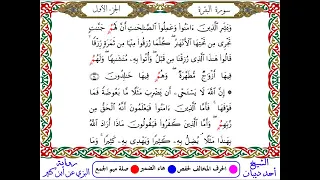 سورة البقرة
الجزء الأول
وَبَشِّرِ الَّذِينَ ءَامَنُوا وَعَمِلُوا الصَّالِحَاتِ أَنَّ لَهُمُ جَنَّاتٍ
تَجْرِى مِن تَحْتِهَا الْأَنْهَارُ كُلَّمَا رُزِقُوا مِنْهَا مِن ثَمَرَةٍ رِّزْقًا
قَالُوا هَٰذَا الَّذِى رُزِقْنَا مِن قَبْلُ وَأُتُوا بِهِ مُتَشَابِهًا وَلَهُمُ
فِيهَا أَزْوَاجٌ مُّطَهَّرَةٌ وَهُمُ فِيهَا خَالِدُونَ
إِنَّ اللَّهَ لَا يَسْتَحْىِ أَن يَضْرِبَ مَثَلًا مَّا بَعُوضَةً فَمَا
فَوْقَهَا فَأَمَّا الَّذِينَ ءَامَنُوا فَيَعْلَمُونَ أَنَّهُ الْحَقُّ مِن
رَّبِّهِمُ وَأَمَّا الَّذِينَ كَفَرُوا فَيَقُولُونَ مَاذَا أَرَادَ اللَّهُ
بِهَٰذَا مَثَلًا يُضِلُّ بِهِ كَثِيرًا وَيَهْدِى بِهِ كَثِيرًا وَمَا
الشيخ أحمد ديبان
الحرف المخالف لحفص
هاء الضمير
صلة ميم الجمع
رواية البزي عن ابن كثير